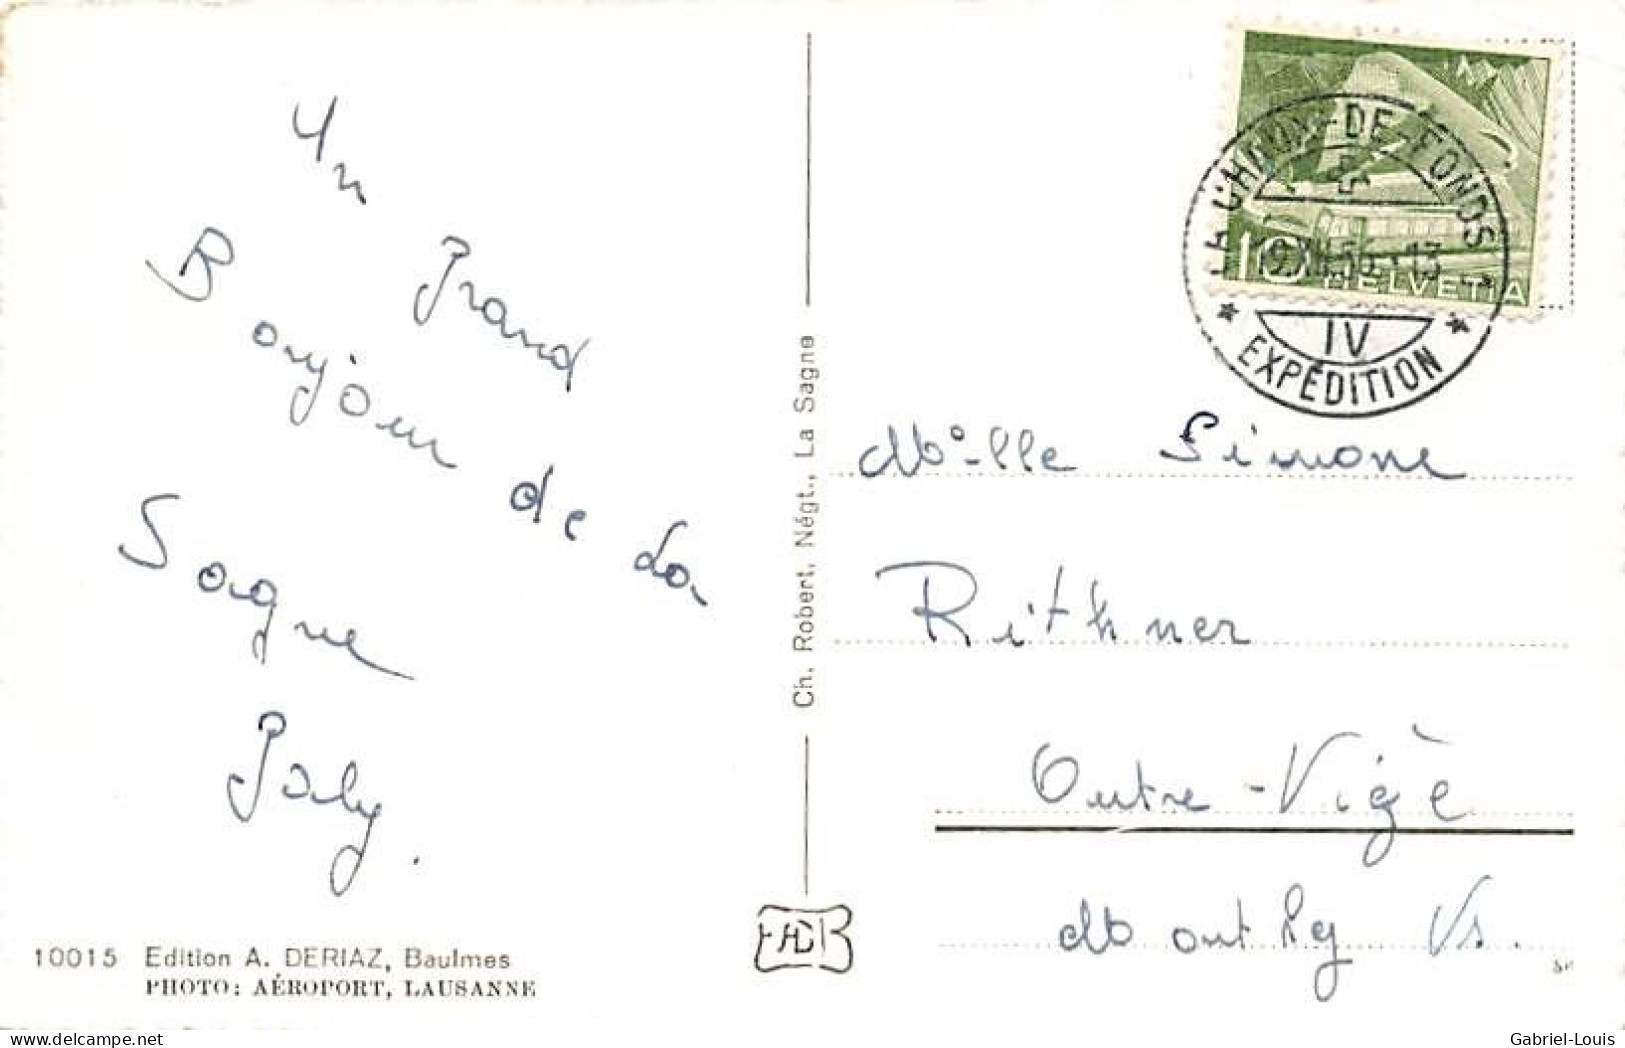 Un
Grand
Bonjour de La
Sagne
Joly.
10015 Edition A. DERIAZ, Baulmes
PHOTO: AÉROPORT, LAUSANNE
Ch. Robert, Négt., La Sagne
LA CHAUX-DE-FONDS
10 HELVETIA
IV
EXPÉDITION
Mlle Simone
Rithner
Outre-Vièze
Monthey Vs.
delcampe.net
Gabriel-Louis